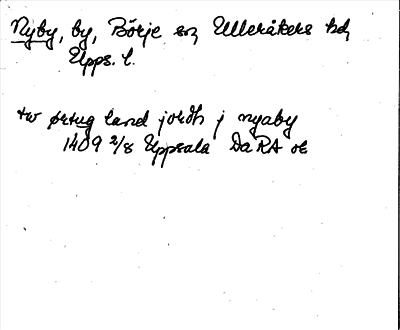 Nyby, by, Börje sn, Ulleråkers hd,
Upps. l.
tw ørtug land jordh j nyaby
1409 2/8 Uppsala DaRA or